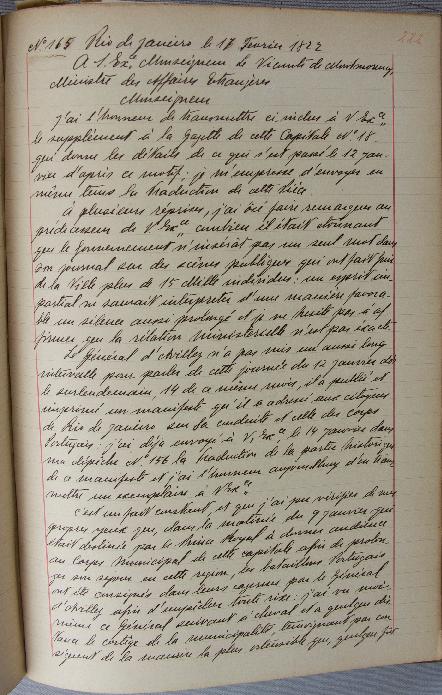 222
Nº 165 Rio de Janeiro le 17 Fevrier 1822
A S. Exce Monseigneur Le Vicomte de Montmorency,
Ministre des Affaires Etrangères
Monseigneur
J'ai l'honneur de transmettre ci inclus à V. Exce
le supplément à la gazette de cette Capitale Nº 18
qui donne les détails de ce qui s'est passé le 12 Jan-
vier d'après ce motif; je m'empresse d'envoyer en
même tems la traduction de cette pièce.
À plusieurs reprises, j'ai osé faire remarquer au
prédécesseur de V. Exce combien il était étonnant
que le Gouvernement n'insérât pas un seul mot dans
son journal sur des scènes publiques qui ont fait fuir
de la Ville plus de 15 Mille individus: un esprit im-
partial ne saurait interpreter d'une manière favora-
ble un silence aussi prolongé et je ne hesite pas à af-
firmer que la rélation ministerielle n'est pas exacte.
Le Général d'Avillez n'a pas mis un aussi long
intervalle pour parler de cette journée du 12 janvier dès
le surlendemain 14 de ce même mois, il a publié et
imprimé un manifeste qu'il a adressé aux citoyens
de Rio de Janeiro sur sa conduite et celle des corps
Portugais: j'ai déjà envoyé à V. Exce le 14 janvier dans
ma dépêche Nº 156 la traduction de la partie historique
de ce manifeste et j'ai l'honneur aujourd'hui d'en trans-
mettre un exemplaire à V. Exce
C'est un fait constant, et que j'ai pu vérifier de mes
propres yeux que, dans la matinée du 9 janvier qui
était destinée par le Prince Royal à donner audience
au Corps Municipal de cette capitale afin de prolon-
ger son séjour en cette region, les bataillons Portugais
ont été consignés dans leurs casernes par le Général
d'Avillez afin d'empêcher toute rixe: j'ai vu moi-
même ce Général suivant à cheval et à quelque dis-
tance le cortége de la municipalité, témoignant par con-
séquent de la manière la plus ostensible que, quelque fût